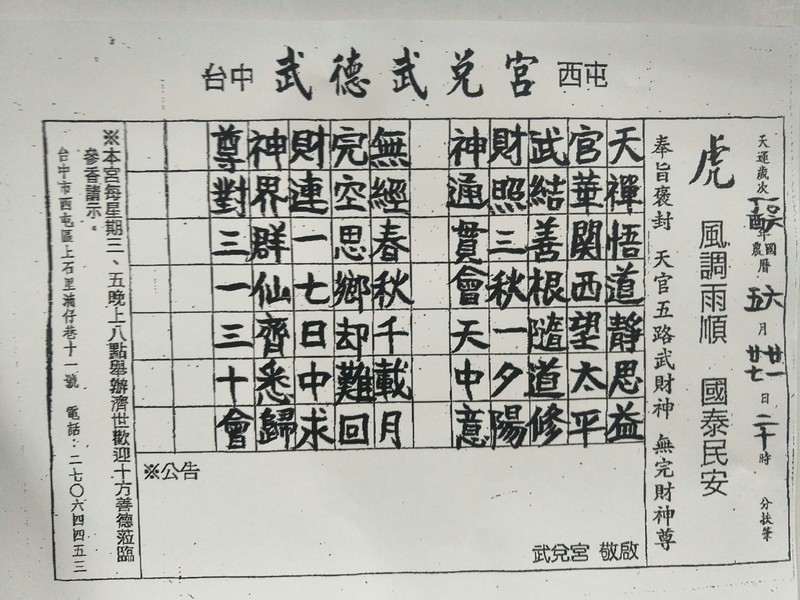 台中 武德武兌宮 西屯
天運歲次丁酉年國農曆六五月廿一廿七日二十時 分扶筆
虎 風調雨順 國泰民安
奉旨褒封 天官五路武財神 無完財神尊
天禪悟道靜思益
官華關西望太平
武結善根隨道修
財照三秋一夕陽
神通貫會天中意
無經春秋千載月
完空思鄉却難回
財連一七日中求
神界群仙齊悉歸
尊對三一三十會
※公告
武兌宮 敬啟
※本宮每星期三、五晚上八點舉辦濟世歡迎十方善德蒞臨
參香請示。
台中市西屯區上石里湳仔巷十一號 電話：二七０六四四五三